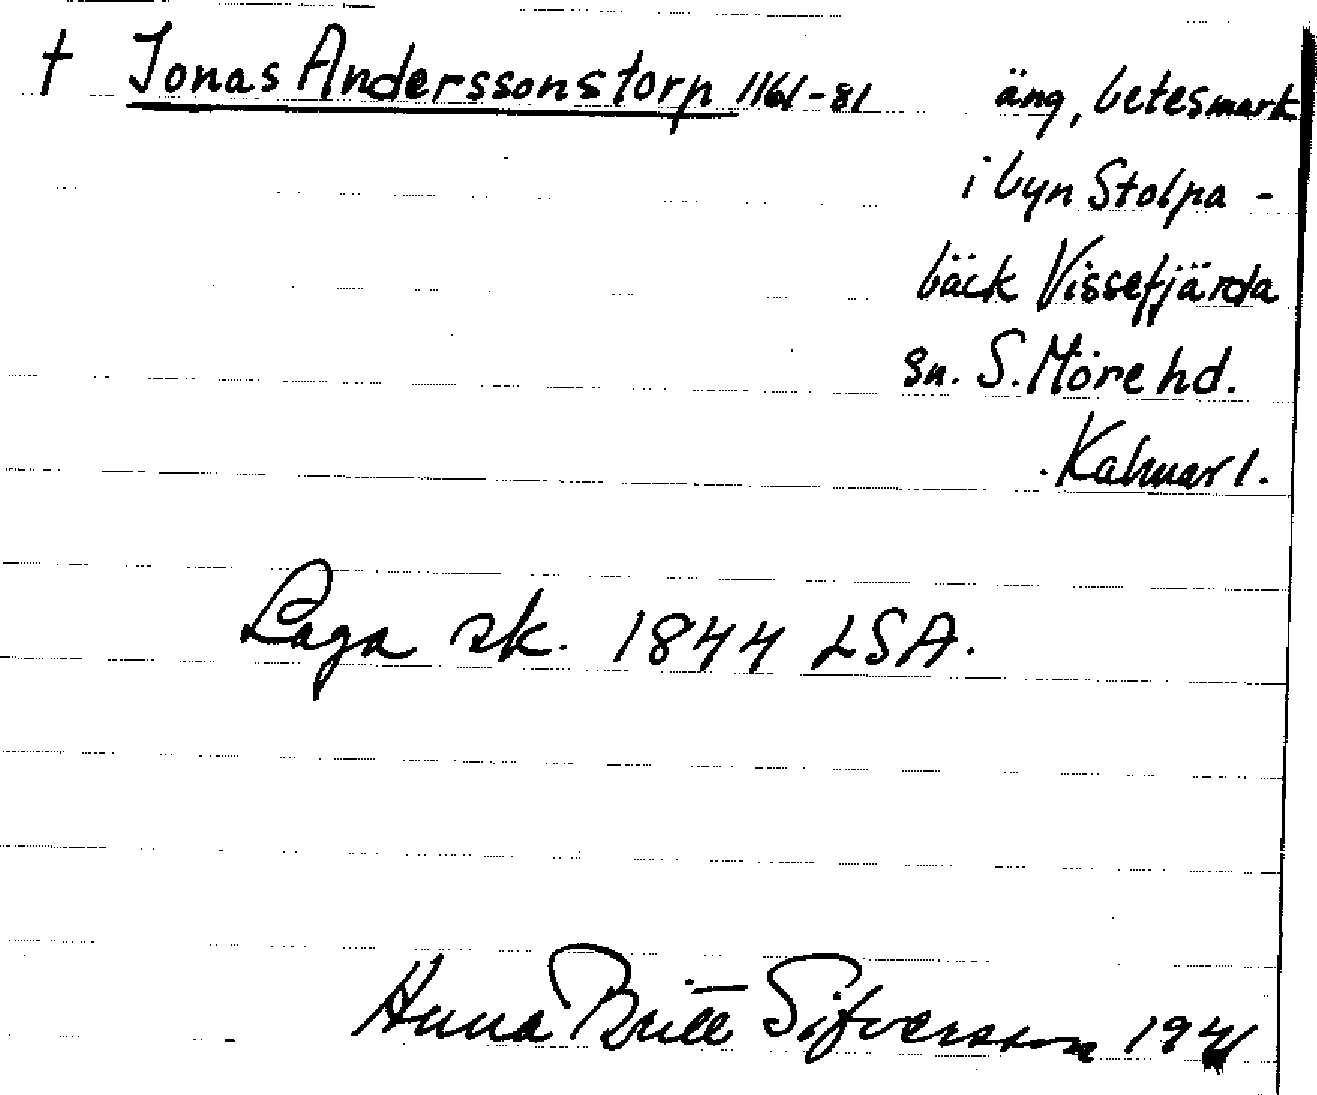 † Jonas Anderssonstorp 1161-81 äng, betesmark
i byn Stolpa-
bäck Vissefjärda
sn. S. Möre hd.
Kalmar l.
Laga sk. 1844 LSA.
Anna Britt Sifversson